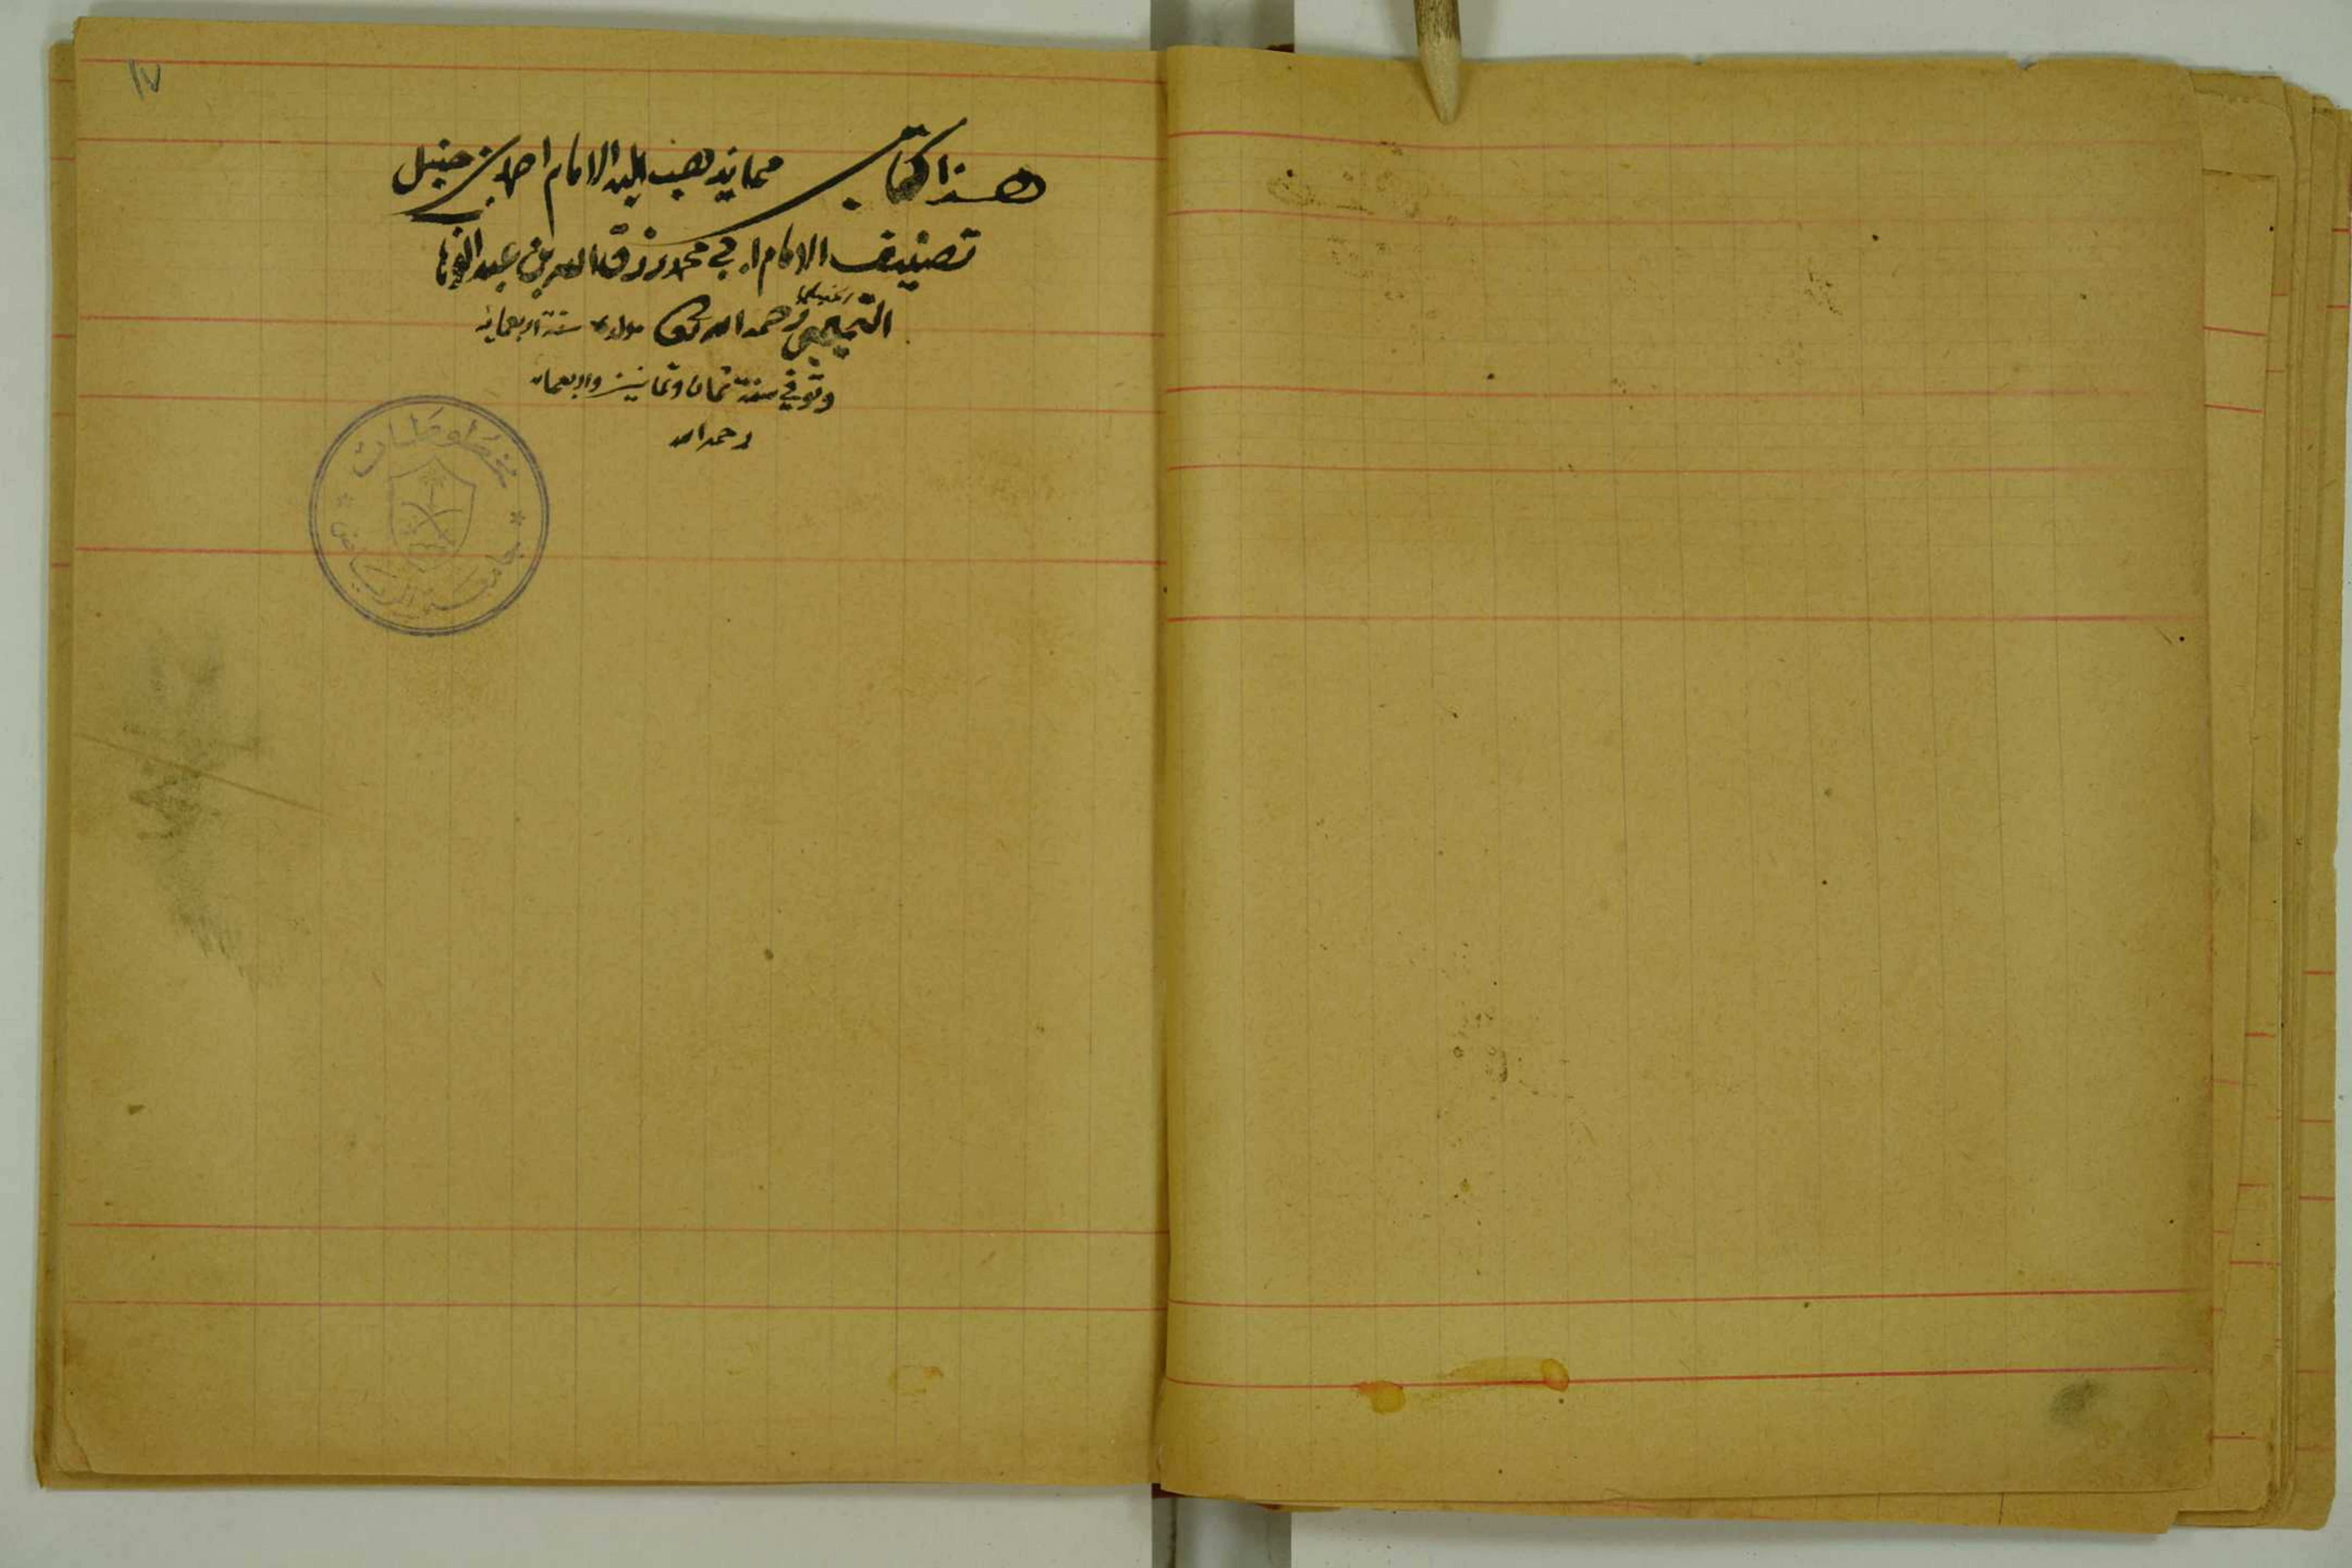 ١٧
هذا كتاب مما يذهب اليه الامام احمد بن حنبل
تصنيف الامام ابي محمد رزق الله بن عبد الوهاب
التميمي رحمه الله تعالى مولده سنة اربعمائة
وتوفي سنة ثمان وثمانين واربعمائة
رحمه الله
مخطوطات
جامعة الرياض